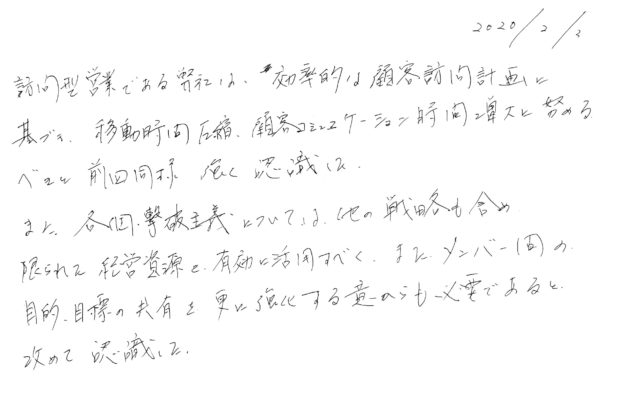 2020/2/2
訪問型営業である弊社は、効率的な顧客訪問計画に
基づき、移動時間圧縮、顧客コミュニケーション時間増大に努める
べきと前回同様 強く 認識した。
また、各個撃破主義については、他の戦略も含め
限られた 経営資源を、有効に活用すべく、また、メンバー間の
目的、目標の共有を 更に強化する意からも必要であると、
改めて 認識した。